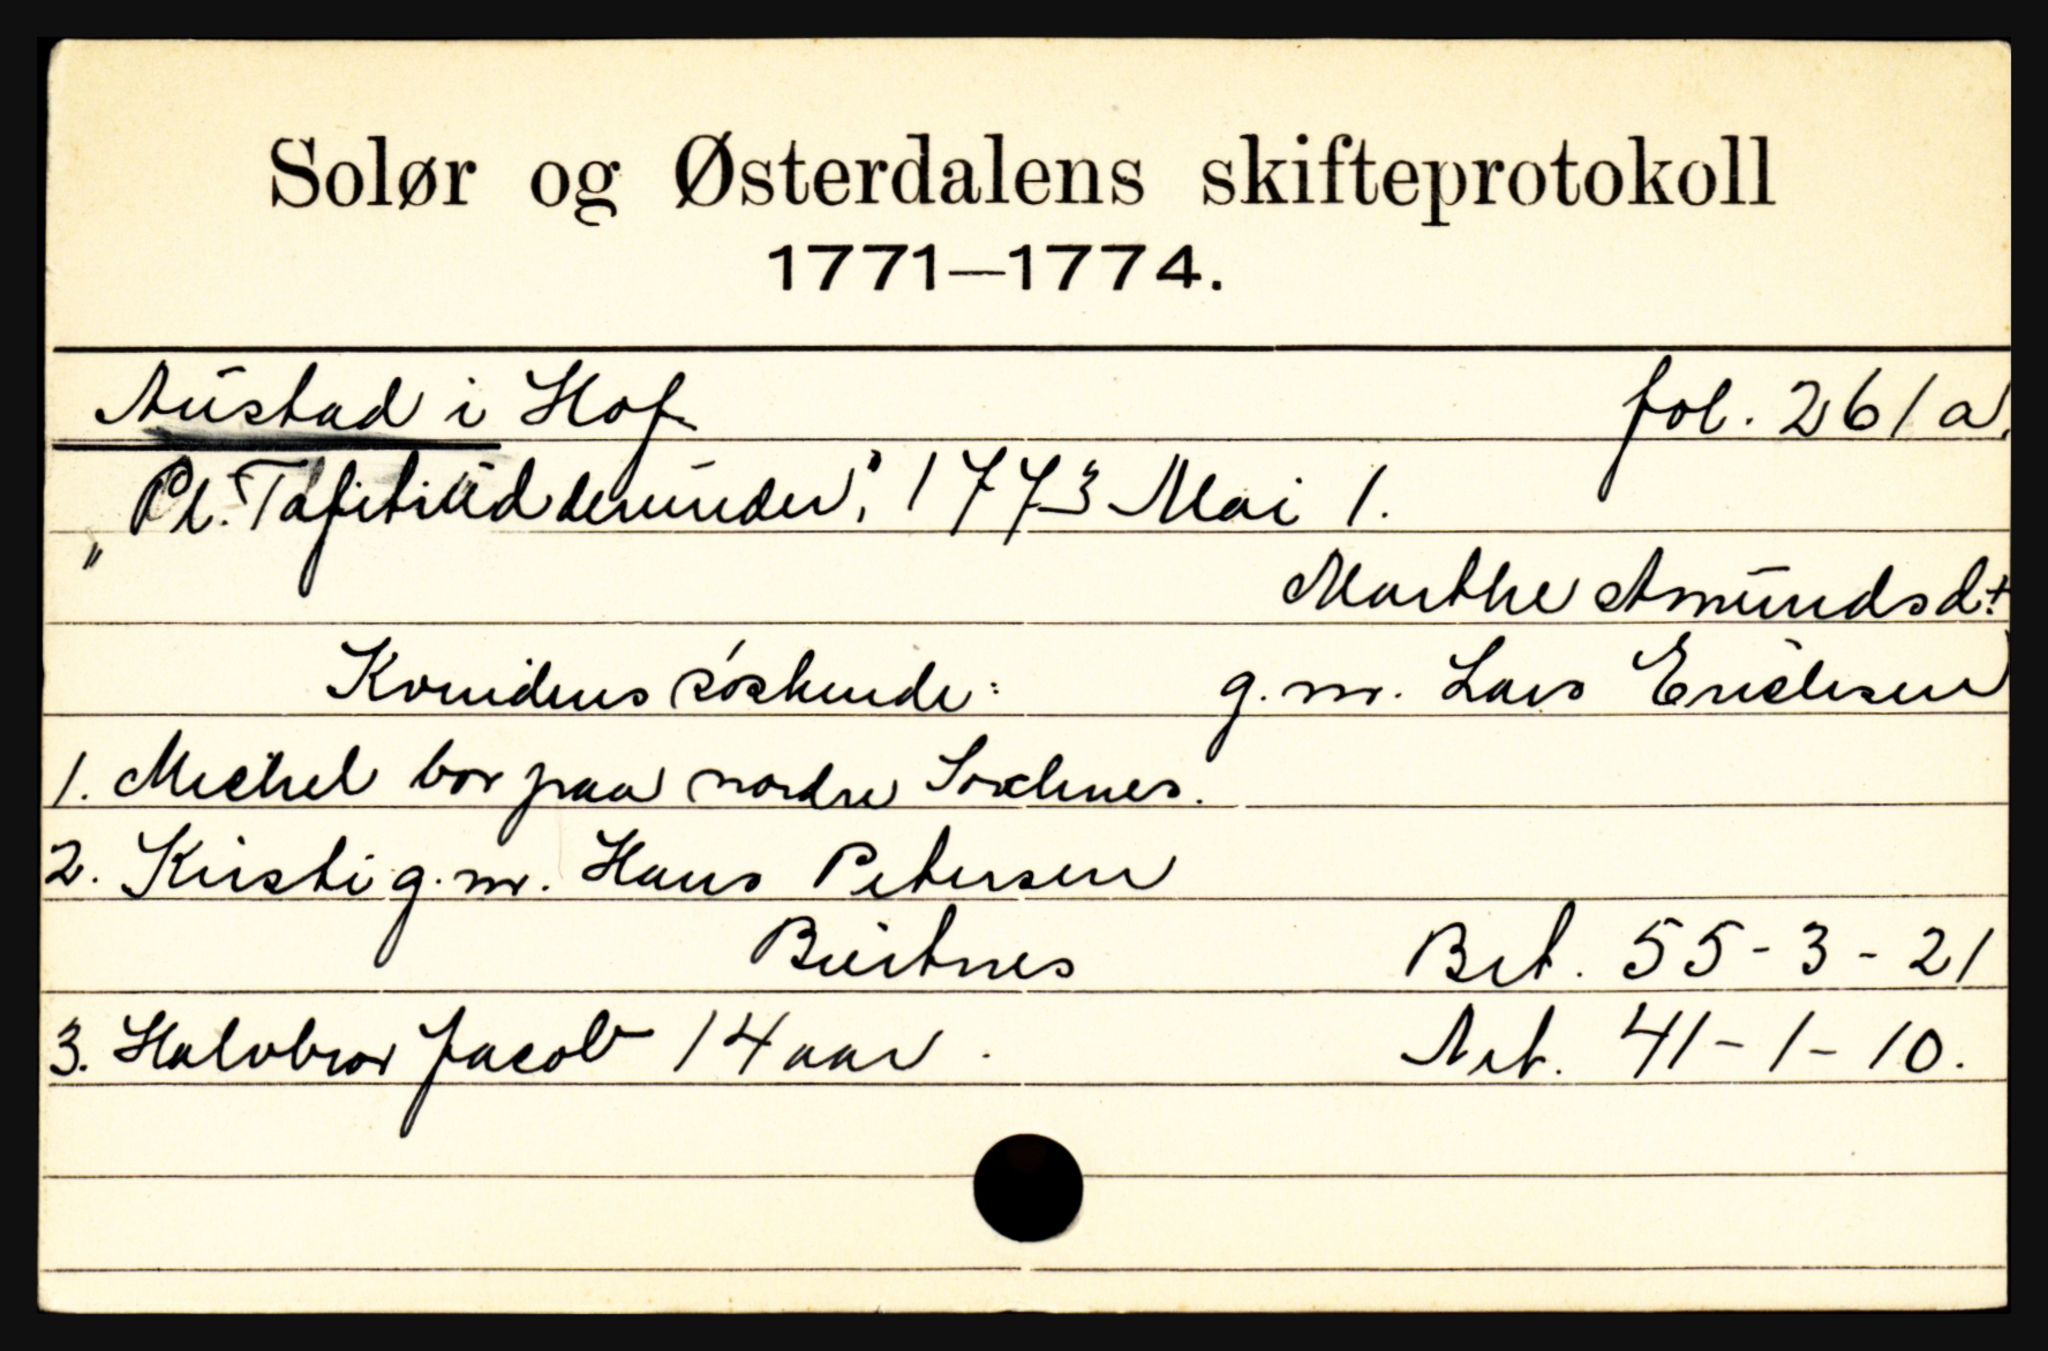 Solør og Østerdalens skifteprotokoll
1771—1774.
Austad i Hof fol. 261 a.
„Pl. Tafetrud derunder”, 1773 Mai 1.
Marthe Amundsdt
Kvindens søskende: g.m. Lars Erichsen
1. Michel bor paa nordre Sorknes.
2. Kirsti g.m. Hans Petersen
Buitnes Brt. 55-3-21
3. Halvbror Jacob 14 aar. Net. 41-1-10.